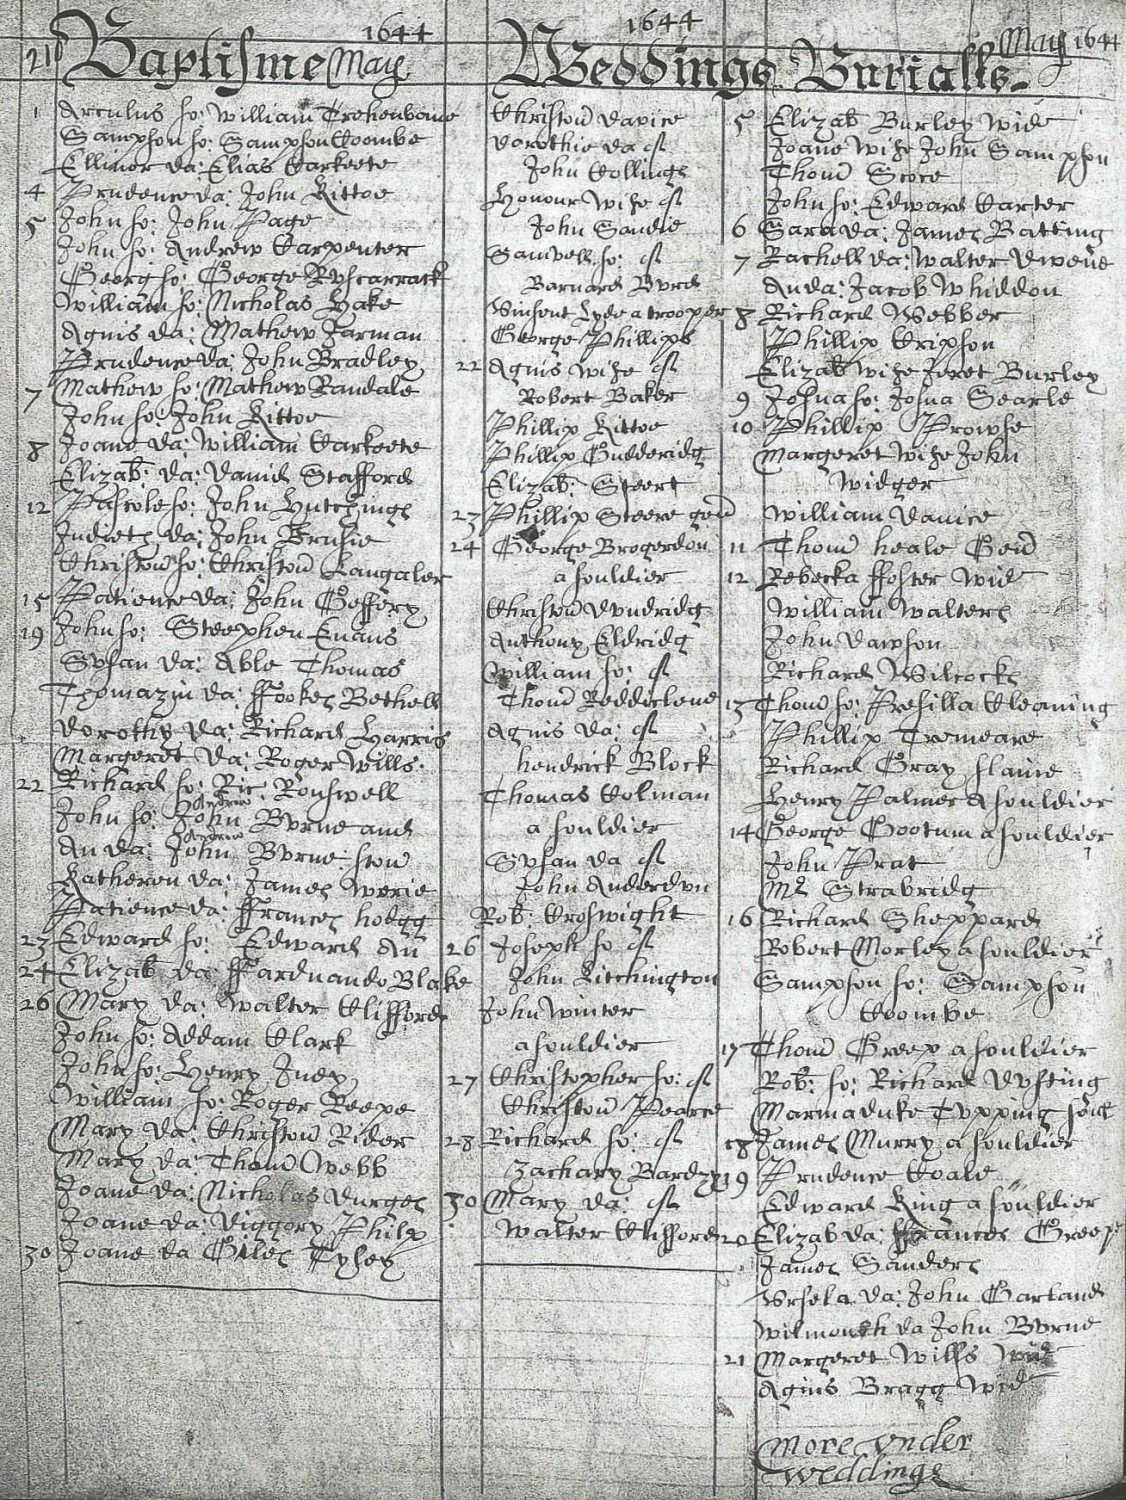 1644
21 Baptisme May
1 Arculus so: William Trehenbaine
Sampson so: Sampson Coombe
Ellinor da: Elias Carkeete
4 Prudence da: John Kittoe
5 John so: John Page
John so: Andrew Carpenter
Georg so: George Ruscarrack
William so: Nicholas Hake
Agnis da: Mathew Jarman
Prudence da: John Bradley
7 Mathew so: Mathew Randale
John so: John Kittoe
8 Joane da: William Carkeete
Elizab: da: David Stafford
12 Pascole so: John Hutchings
Judieth da: John Brusie
Christom so: Christom Langaler
15 Patience da: John Geffery
19 John so: Steephen Evans
Susan da: Able Thomas
Thomazin da: ffookes Bethell
Dorothy da: Richard Harris
Margeret da: Roger Wills
22 Richard so: Ric: Ronswell
John so: John Burne and
An da: John Burne
Katheren da: James Werie
Patience da: ffrances hodgg
23 Edward so: Edward An
24 Elizab da: ffardnando Blake
26 Mary da: Walter Clifford
John so: Addam Clark
John so: Henry Juey
William so: Roger Reepe
Mary da: Christom Rider
Mary da: Thom Webb
Joane da: Nicholas Durges
Joane da: Diggory Philp
30 Joane da Giles Tyhey
1644
Weddings
Christom Davice
Dorothie da of
John Collings
Honour Wife of
John Sandie
Samuell so: of
Barnard Burd
Vinsent Lyde a trooper
George Phillips
22 Agnis Wife of
Robert Baker
Phillip Kittoe
Phillip Gudderidg
Elizab: Steert
23 Phillip Steere gent
24 George Brogerdon
a souldier
Christom Dundridg
Anthony Eldridg
William so: of
Thom Reddicleue
Agnis da: of
hendrick Block
Thomas Colman
a souldier
Susan da of
John Anderdon
Rob: Croswight
26 Joseph so of
John Kitchington
John Winter
a souldier
27 Christopher so: of
Christom Pearce
28 Richard so: of
Zachary Bard
30 Mary da: of
Walter Clifford
May 1644
Burialls
5 Elizab Burley Wid
Joane Wife John Sampson
Thom Score
John so: Edward Carter
6 Sara da: James Batting
7 Rachell da: Walter Dweue
An da: Jacob Whiddon
8 Richard Webber
Phillip Cripson
Elizab wife Jeret Burley
9 Josua so: Josua Searle
10 Phillip Prowse
Margeret Wife John
Widger
William Davice
11 Thom heale Gent
12 Rebecka ffoster Wid
William Walters
John Dawson
Richard Wilcocks
13 Thom so: Presilla Cleaning
Phillip Tremeare
Richard Gray slaine
Henry Palmer a souldier
14 George Gootum a souldier
John Prat
Mr Strabridg
16 Richard Sheppard
Robert Morley a souldier
Sampson so: Sampson
Coombe
17 Thom Greep a souldier
Rob: so: Richard Dusting
Marmaduke Tupping
18 James Murry a souldier
19 Prudence Coale
Edward King a souldier
20 Elizab da: ffrances Greepe
James Sanders
Ursela da: John Garland
Wilmonth da John Burne
21 Margeret Wills Wid
Agnis Bragg Wid
More Vnder
Weddings